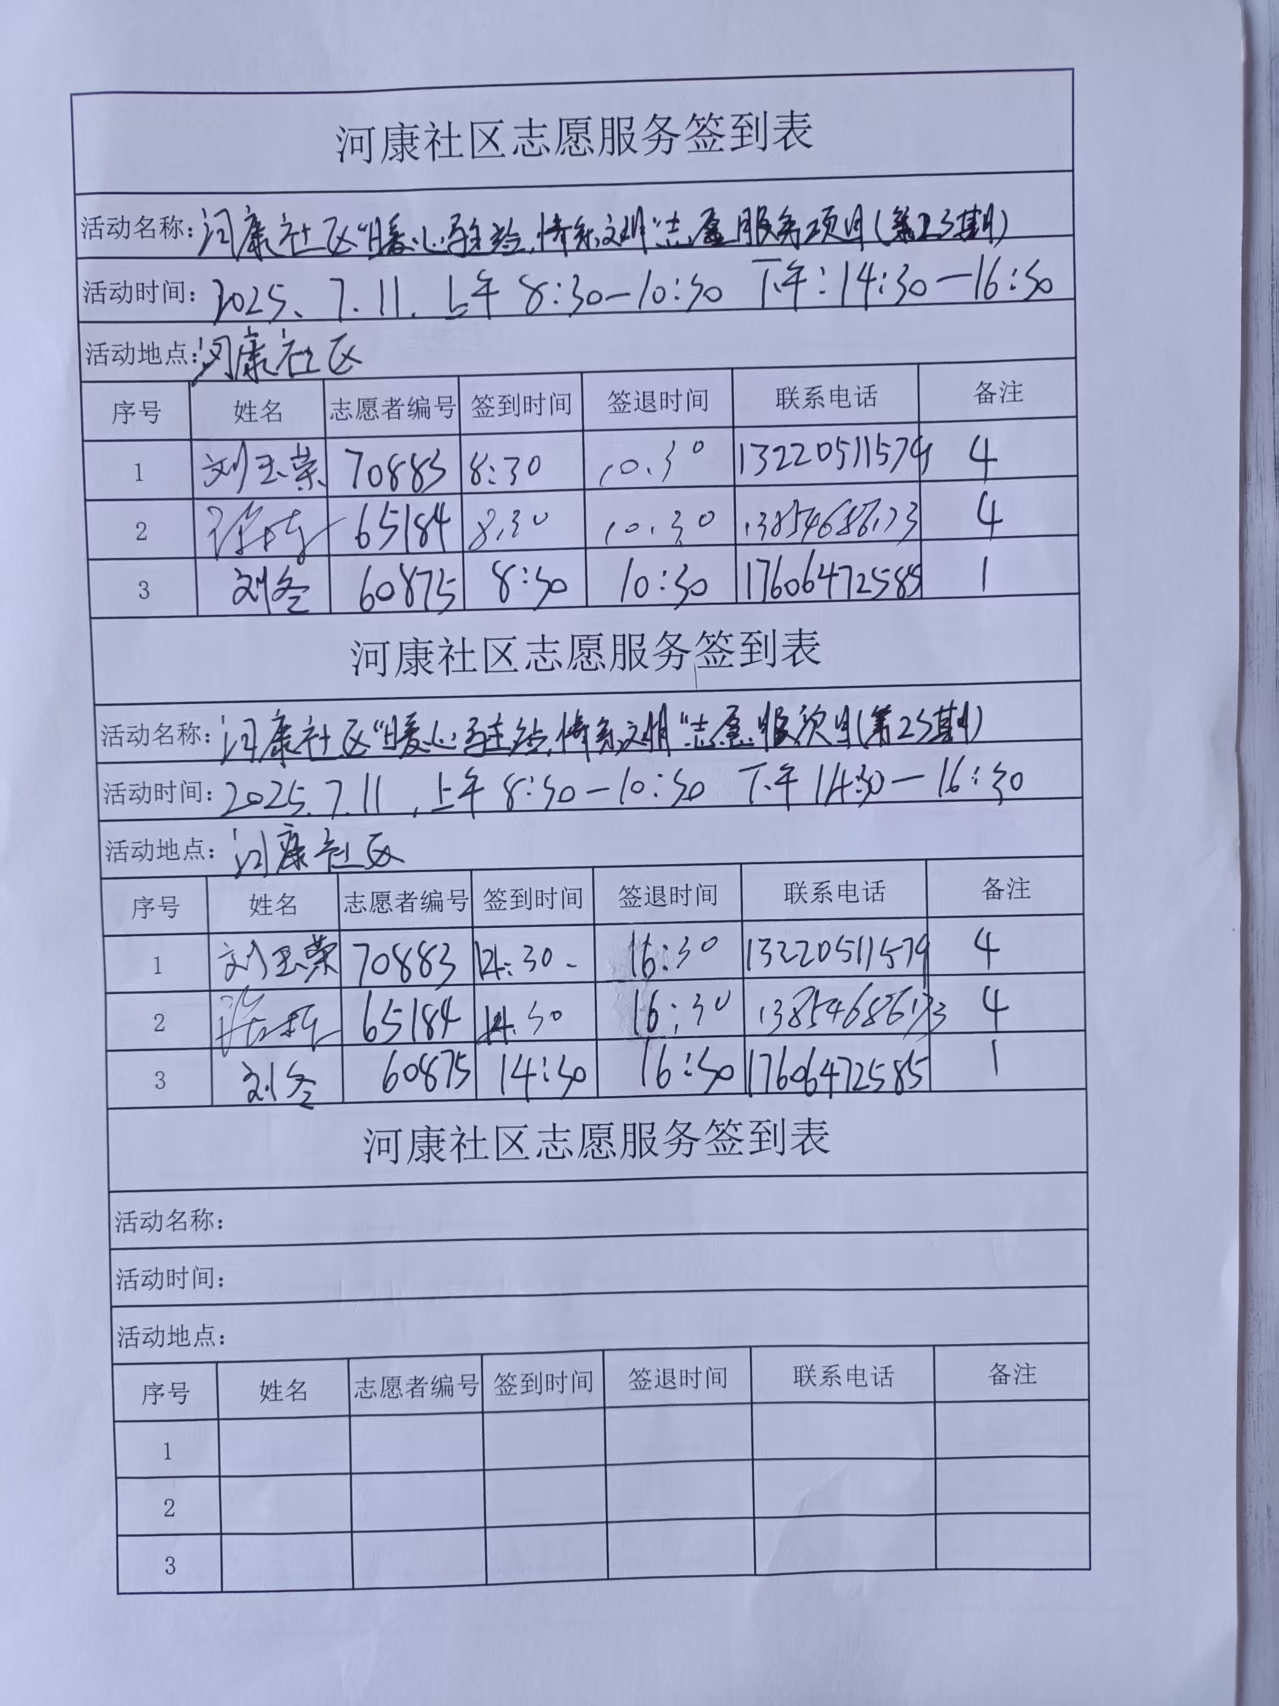 河康社区志愿服务签到表
活动名称：河康社区“暖心驿站，情系文明”志愿服务项目（第23期）
活动时间：2025、7.11.上午 8:30—10:30 下午：14:30—16:30
活动地点：河康社区
序号 姓名 志愿者编号 签到时间 签退时间 联系电话 备注
1 刘玉荣 70883 8:30 10.30 13220511579 4
2 65184 8.30 10.30 13854686173 4
3 刘冬 60875 8:30 10:30 17606472585 1
河康社区志愿服务签到表
活动名称：河康社区“暖心驿站，情系文明”志愿服项目（第23期）
活动时间：2025.7.11，上午 8:30—10:30 下午 14:30—16:30
活动地点：河康社区
序号 姓名 志愿者编号 签到时间 签退时间 联系电话 备注
1 刘玉荣 70883 14:30 16:30 13220511579 4
2 65184 14.30 16:30 13854686173 4
3 刘冬 60875 14:30 16:30 17606472585 1
河康社区志愿服务签到表
活动名称：
活动时间：
活动地点：
序号 姓名 志愿者编号 签到时间 签退时间 联系电话 备注
1
2
3